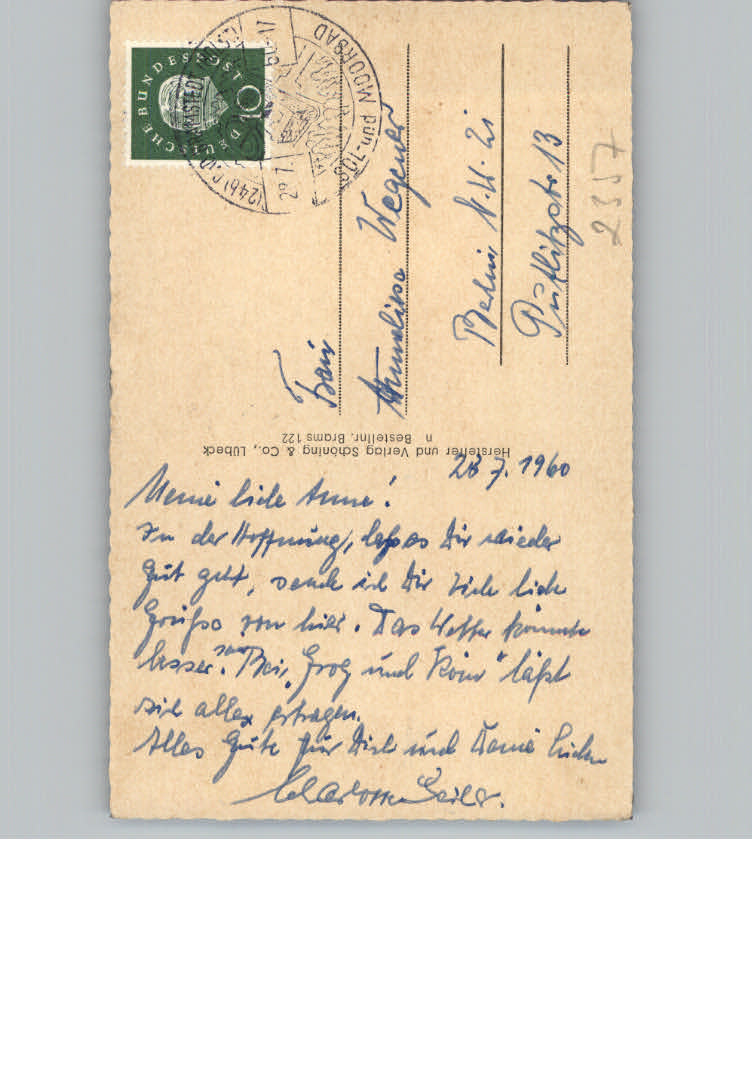 DEUTSCHE BUNDESPOST
10
(24b) BAD BRAMSTEDT (HOLST)
SOL- und MOORBAD
Frau
Annelise Wegener
Berlin N.W. 21
Putlitzstr. 13
2357
Hersteller und Verlag Schöning & Co., Lübeck
n Bestellnr. Brams 122
28.7.1960
Meine liebe Anne!
In der Hoffnung, daß es Dir wieder
gut geht, sende ich Dir viele liebe
Grüße von hier. Das Wetter könnte
besser sein. Bei „Grog und Rum" läßt
sich alles ertragen.
Alles Gute für Dich und Deine Lieben
Charlotte